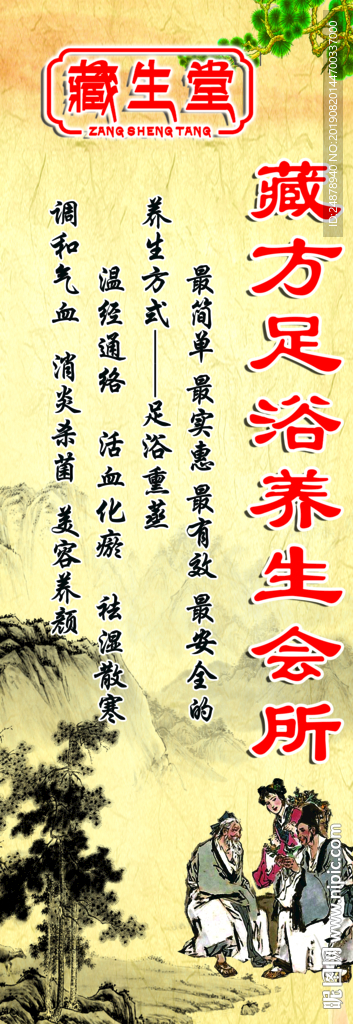 藏生堂
ZANG SHENG TANG
藏方足浴养生会所
最简单 最实惠 最有效 最安全的
养生方式——足浴熏蒸
温经通络 活血化瘀 祛湿散寒
调和气血 消炎杀菌 美容养颜
ID:24878940 NO:20190820144700337000
昵图网 www.nipic.com